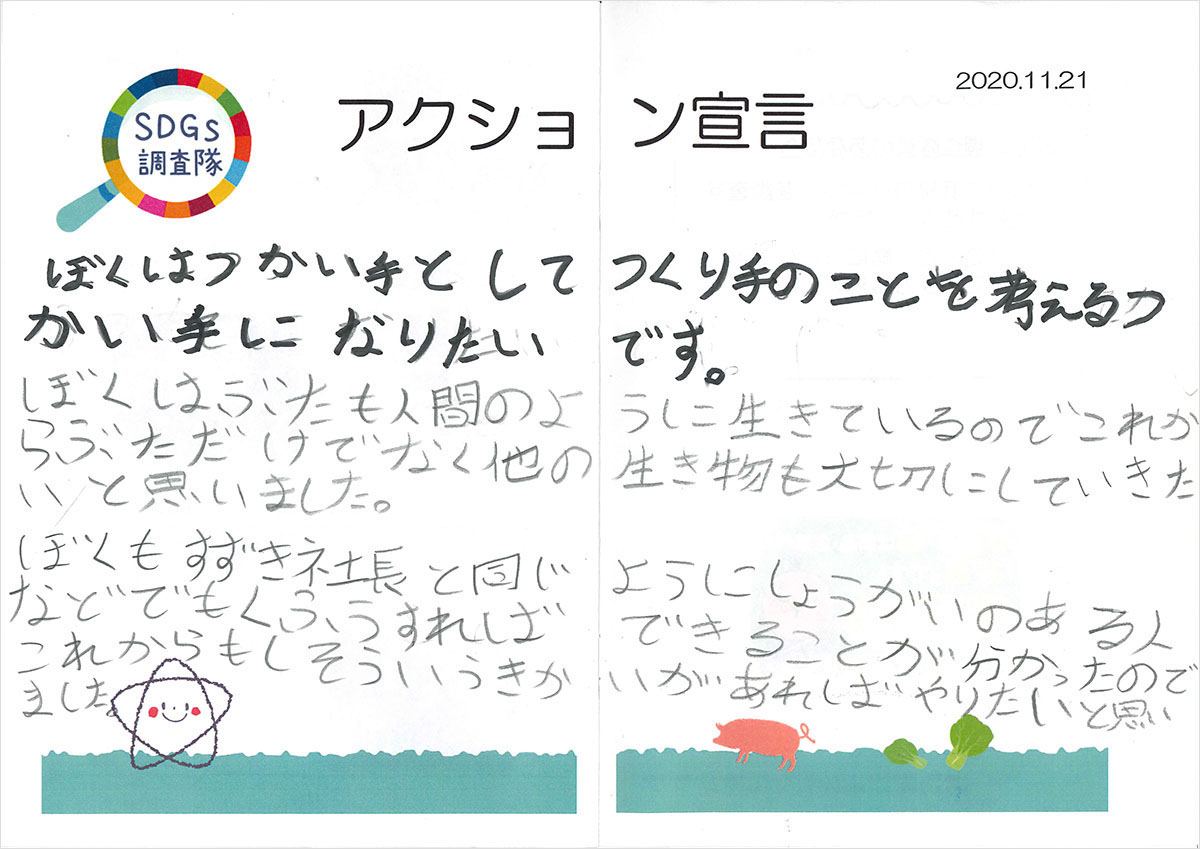 2020.11.21
SDGs
調査隊
アクション宣言
ぼくはつかい手として つくり手のことを考えるつ
かい手に なりたい です。
ぼくはぶたも人間のよ うに生きているのでこれか
らぶただけでなく他の 生き物も大切にしていきた
いと思いました。
ぼくもすずき社長と同じ ようにしょうがいのある人
などでもくふうすれば できることが分かったので
これからもしそういうきか いがあればやりたいと思い
ました。